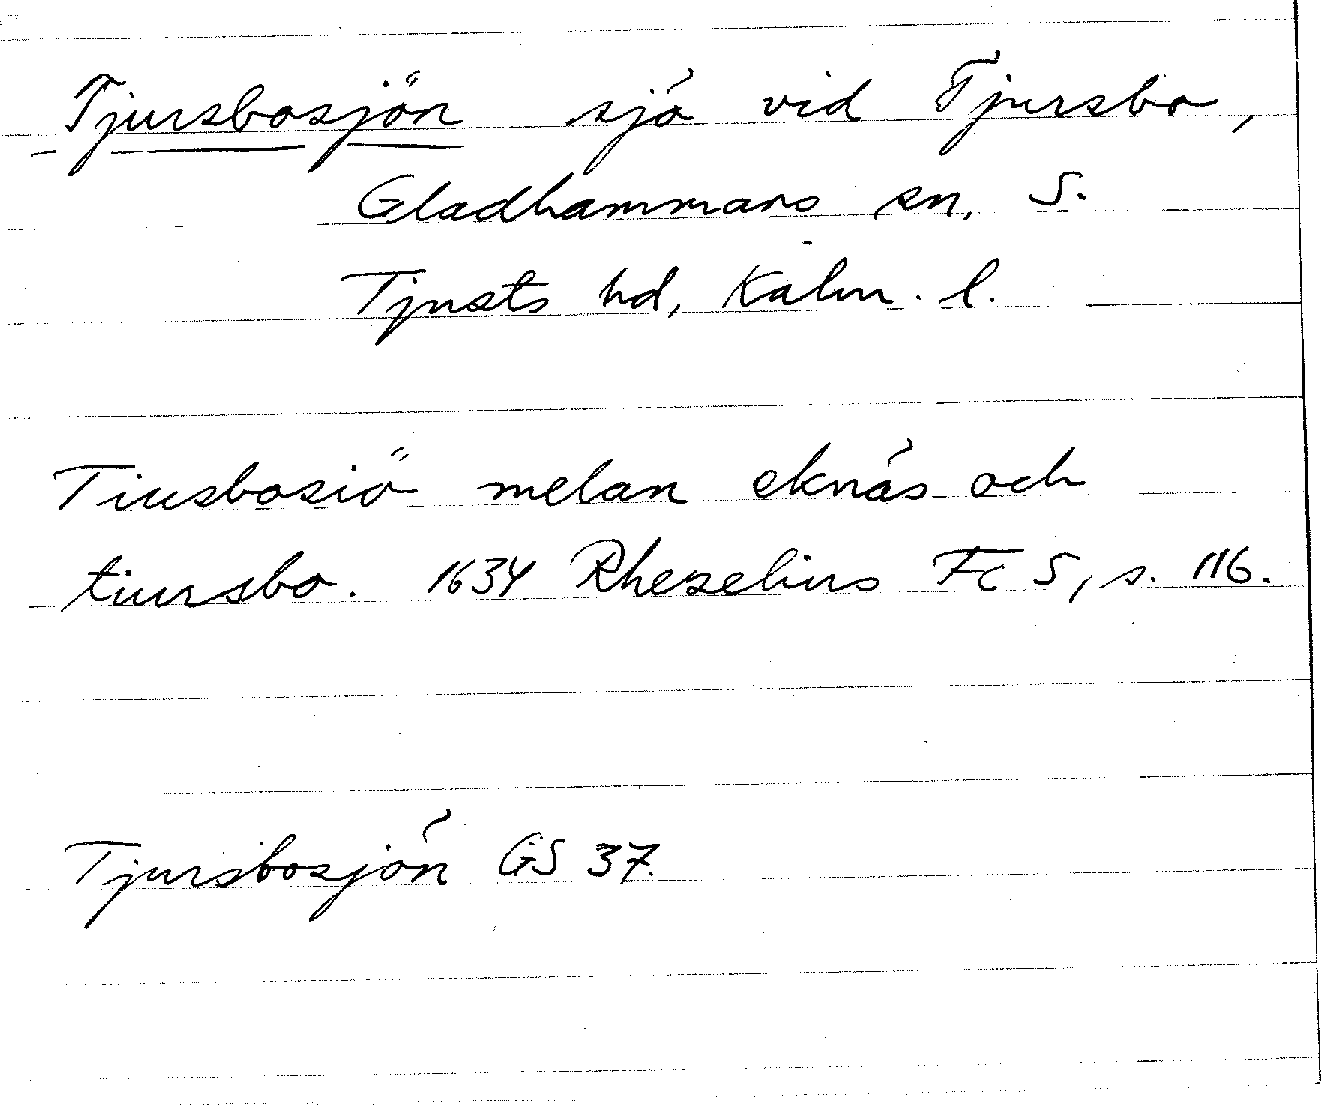 Tjursbosjön sjö vid Tjursbo,
Gladhammars sn, S.
Tjusts hd, Kalm. l.
Tiusbosiö melan eknäs och
tiursbo. 1634 Rhezelius Fc 5, s. 116.
Tjursbosjön GS 37.